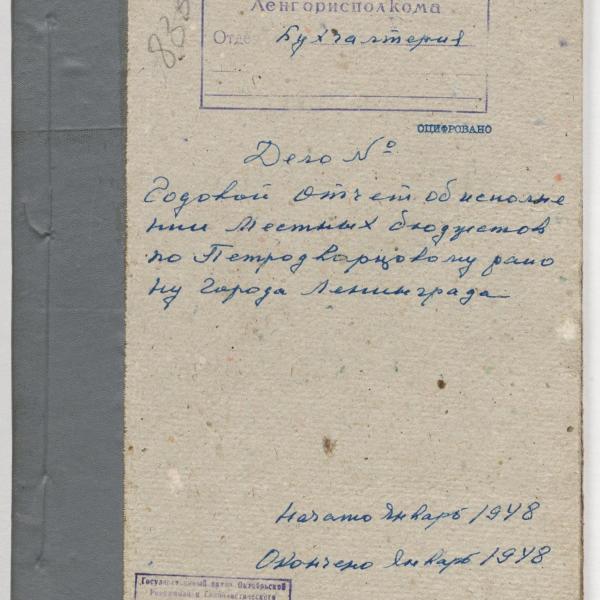 835
Ленгорисполкома
Отдел Бухгалтерия
ОЦИФРОВАНО
Дело №
Годовой отчет об исполне
нии местных бюджетов
по Петродворцовому райо
ну города Ленинграда
Начато январь 1948
Окончено январь 1948
Государственный архив Октябрьской
Революции и Социалистического